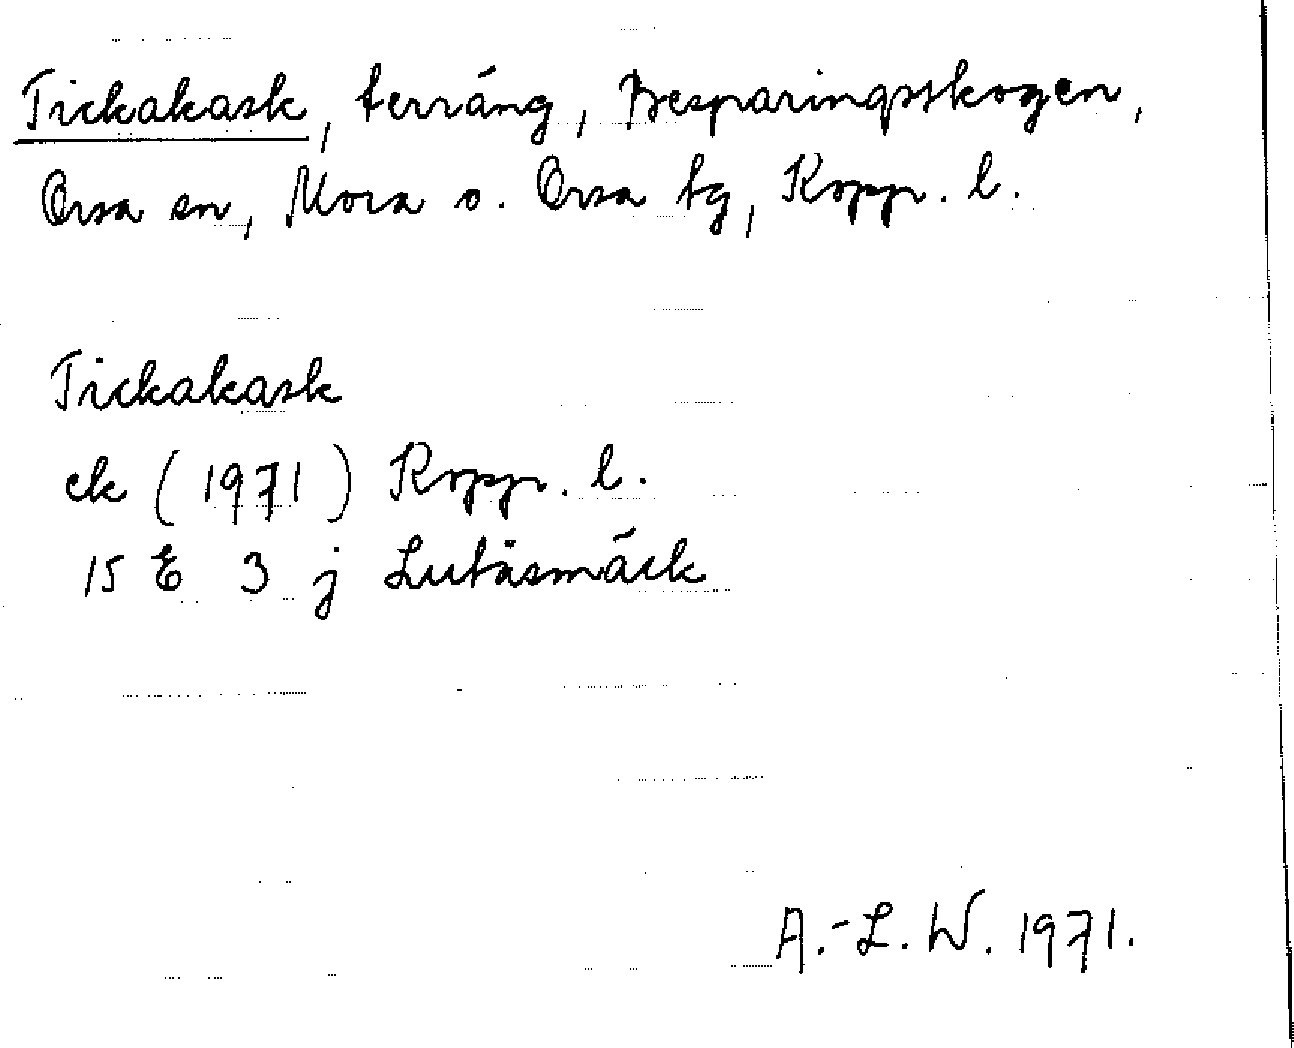 Tickakask, terräng, Besparingsskogen,
Orsa sn, Mora o. Orsa tg, Kopp. l.
Tickakask
ek (1971) Kopp. l.
15 E 3 j Lutåsmäck
A.-L. W. 1971.